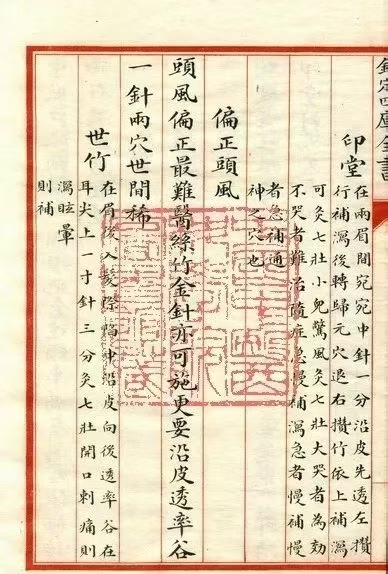 欽定四庫全書
印堂
在兩眉間宛宛中針一分沿皮先透左攢
行補瀉後轉歸元穴退右攢竹依上補瀉
可灸七壯小兒驚風灸七壯大哭者為効
不哭者難治隨症急慢補瀉急者慢補慢
者急補通
神之穴也
偏正頭風
頭風偏正最難醫絲竹金針亦可施更要沿皮透率谷
一針兩穴世間稀
世竹
在眉後入髮際陷中沿皮向後透率谷在
耳尖上一寸針三分灸七壯開口刺痛則
瀉眩暈
則補